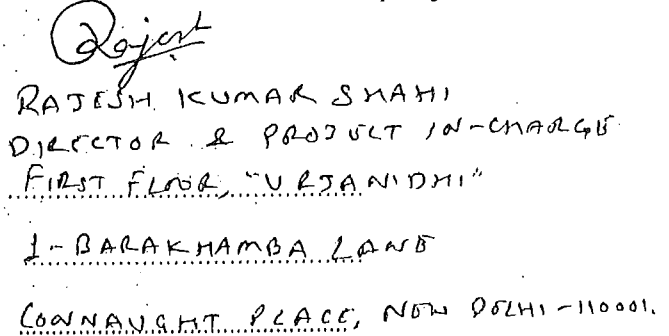 Rajesh
RAJESH KUMAR SHAHI
DIRECTOR & PROJECT IN-CHARGE
FIRST FLOOR, "URJANIDHI"
1-BARAKHAMBA LANE
CONNAUGHT PLACE, NEW DELHI-110001.